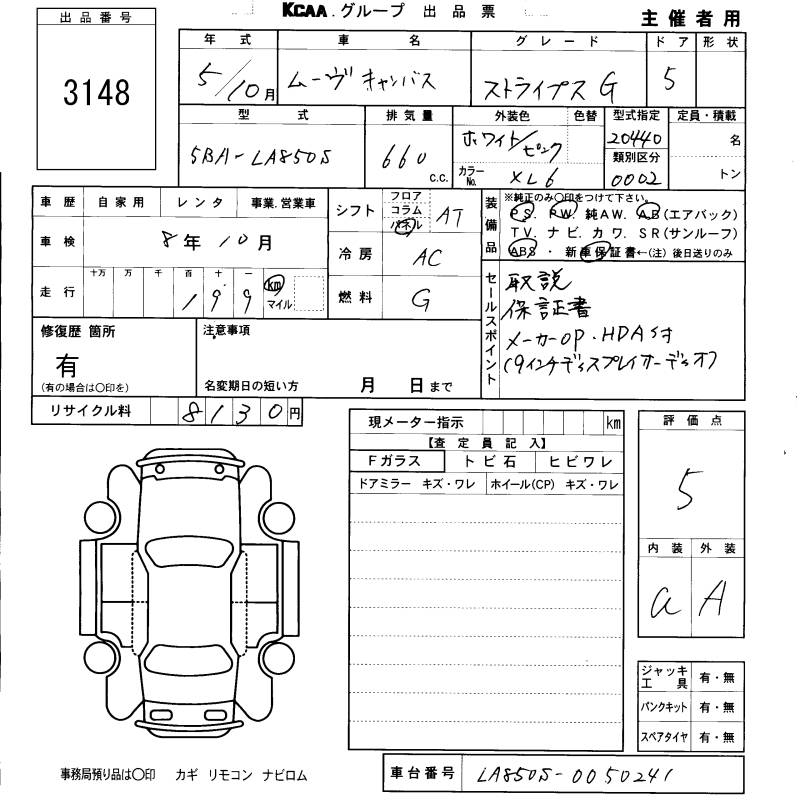 KCAA.グループ 出品票
主催者用
出品番号
3148
年式 車名 グレード ドア 形状
5/10月 ムーヴ キャンバス ストライプス G 5
型式 排気量 外装色 色替 型式指定 定員・積載
5BA-LA850S 660 c.c. ホワイト/ピンク 20440 名
カラーNo. XL6 類別区分 0002 トン
車歴 自家用 レンタ 事業.営業車
車検 8年10月
走行 十万 万 千 百 十 一
199 km マイル
シフト フロア コラム パネル AT
冷房 AC
燃料 G
装備品 ※純正のみ〇印をつけて下さい。
PS. PW. 純AW. AB(エアバック)
TV. ナビ. カワ. SR(サンルーフ)
ABS ・ 新車保証書←(注) 後日送りのみ
セールスポイント
取説
保証書
メーカーOP.HDA付
(9インチディスプレイオーディオ)
修復歴 箇所
有
(有の場合は〇印を)
注意事項
名変期日の短い方 月 日まで
リサイクル料 8130円
現メーター指示 km
【査定員記入】
Fガラス トビ石 ヒビワレ
ドアミラー キズ・ワレ ホイール(CP) キズ・ワレ
評価点
5
内装 外装
a A
ジャッキ工具 有・無
パンクキット 有・無
スペアタイヤ 有・無
事務局預り品は〇印 カギ リモコン ナビロム
車台番号 LA850S-0050241